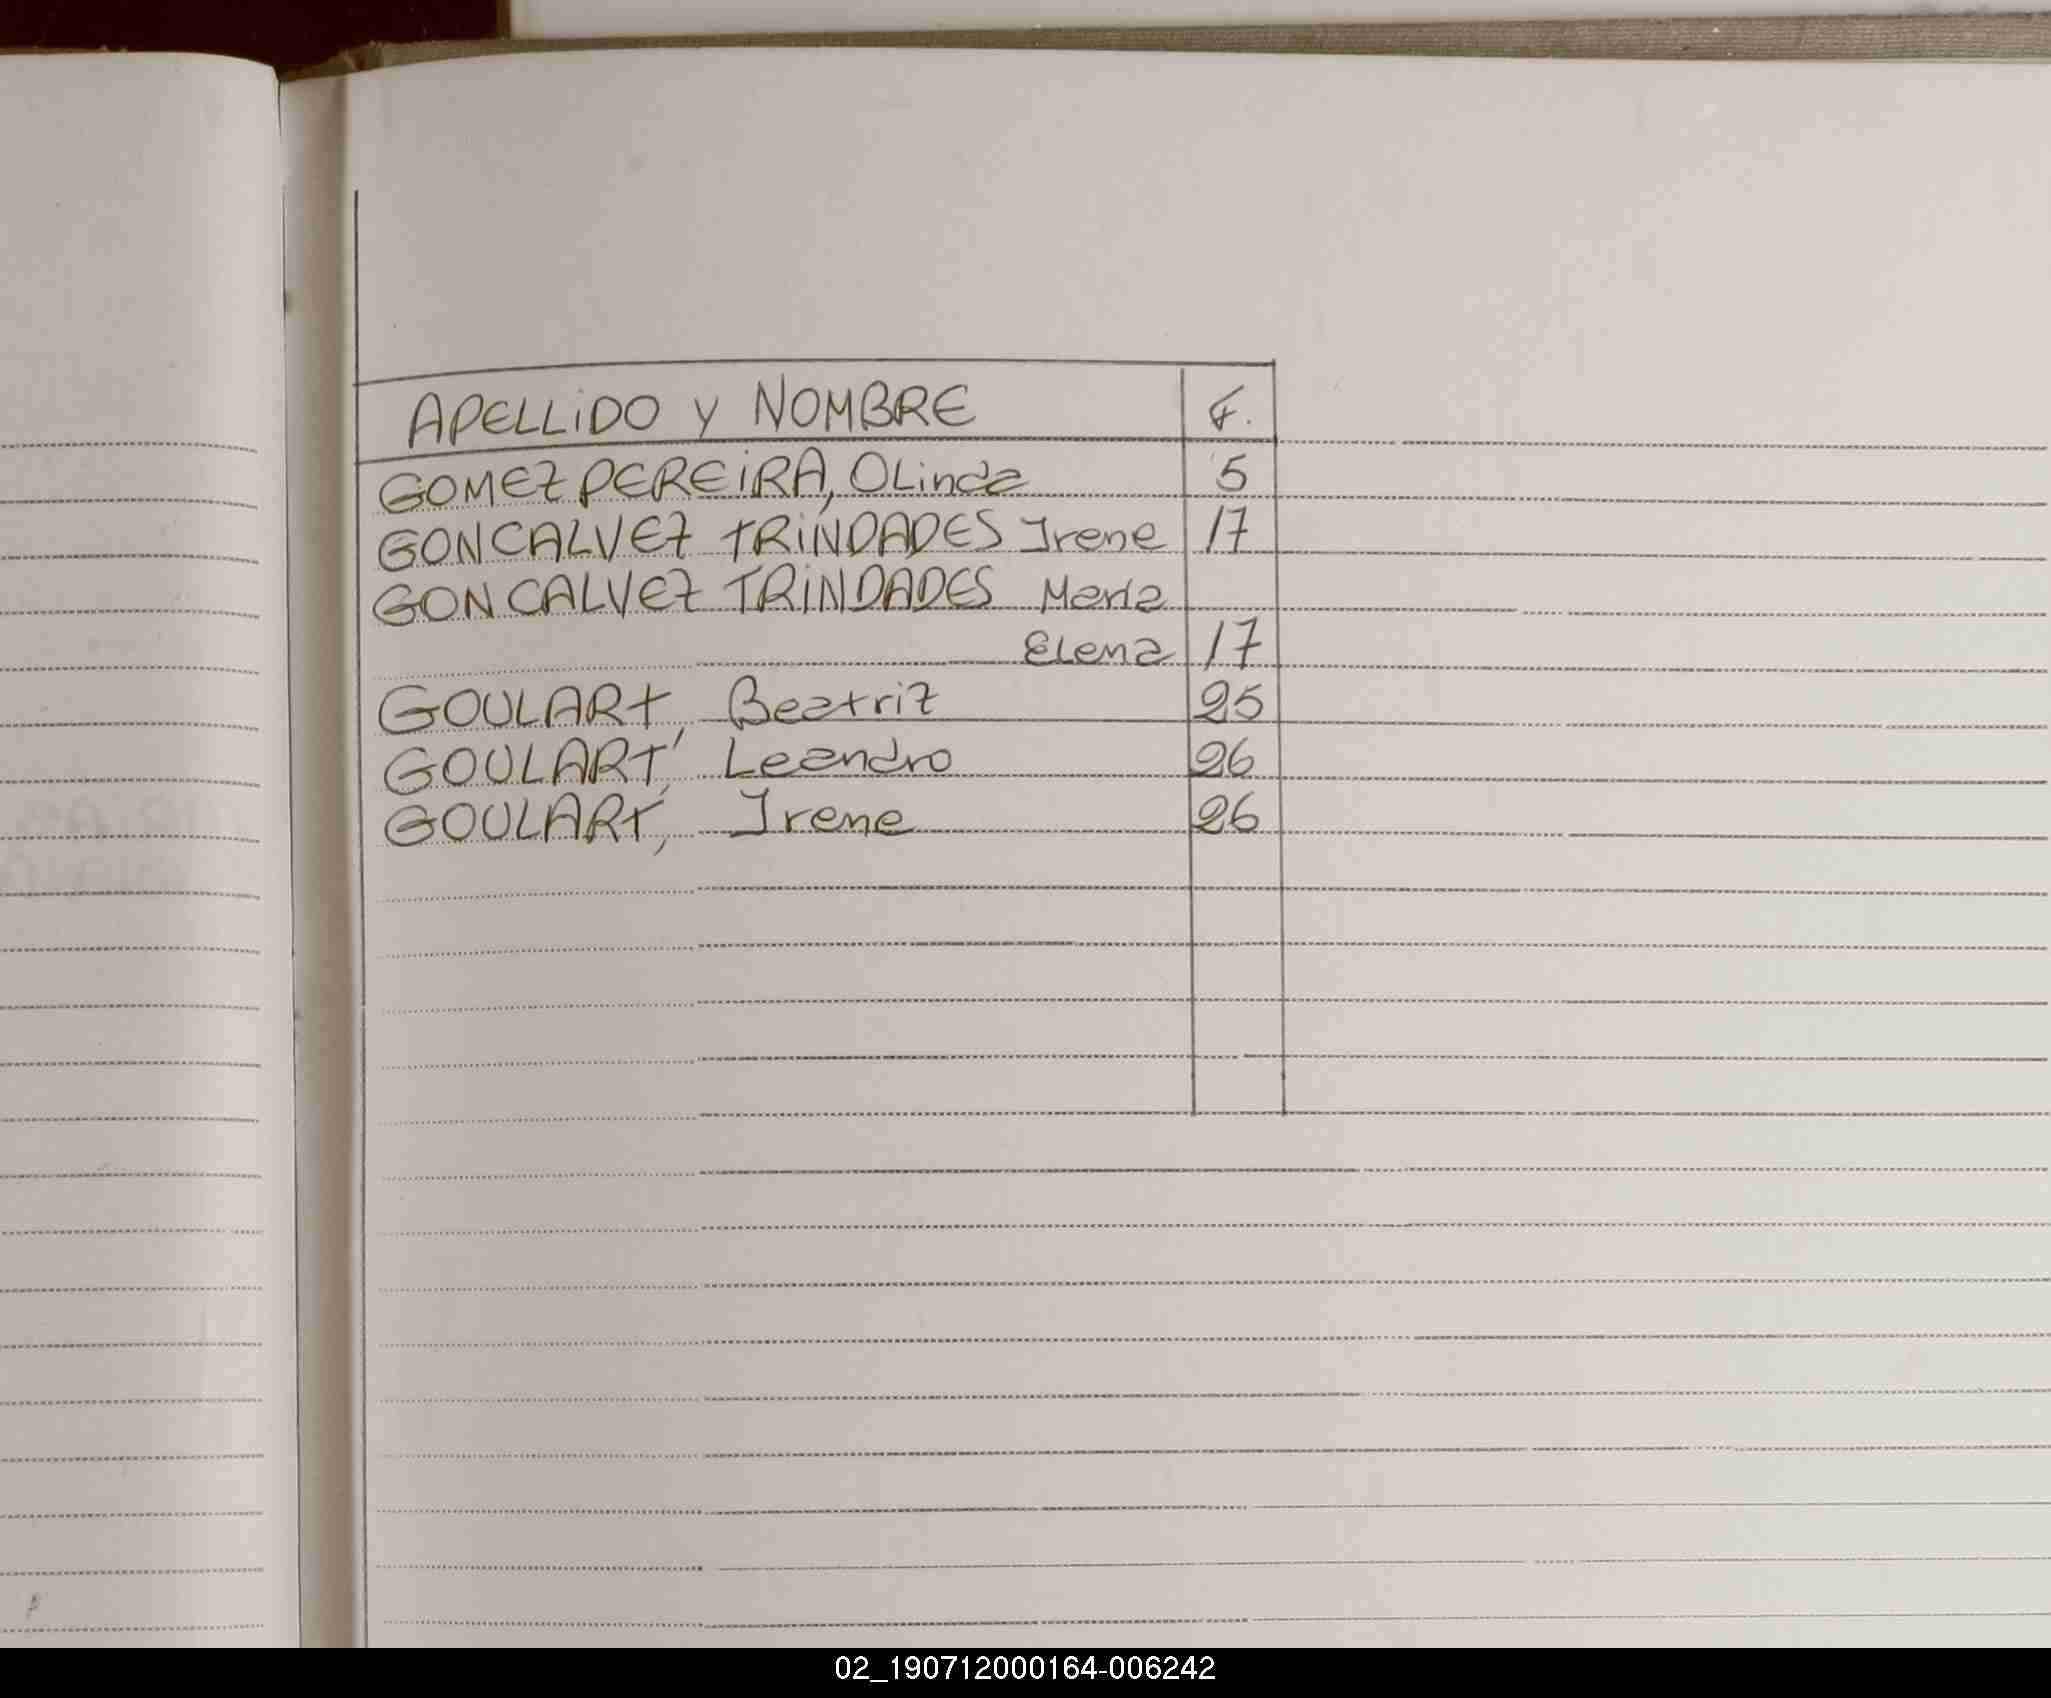 APELLIDO Y NOMBRE F.
GOMEZ PEREIRA, OLinda 5
GONCALVEZ TRINDADES Irene 17
GONCALVEZ TRINDADES Maria
ELena 17
GOULART, Beatriz 25
GOULART, Leandro 26
GOULART, Irene 26
02_190712000164-006242